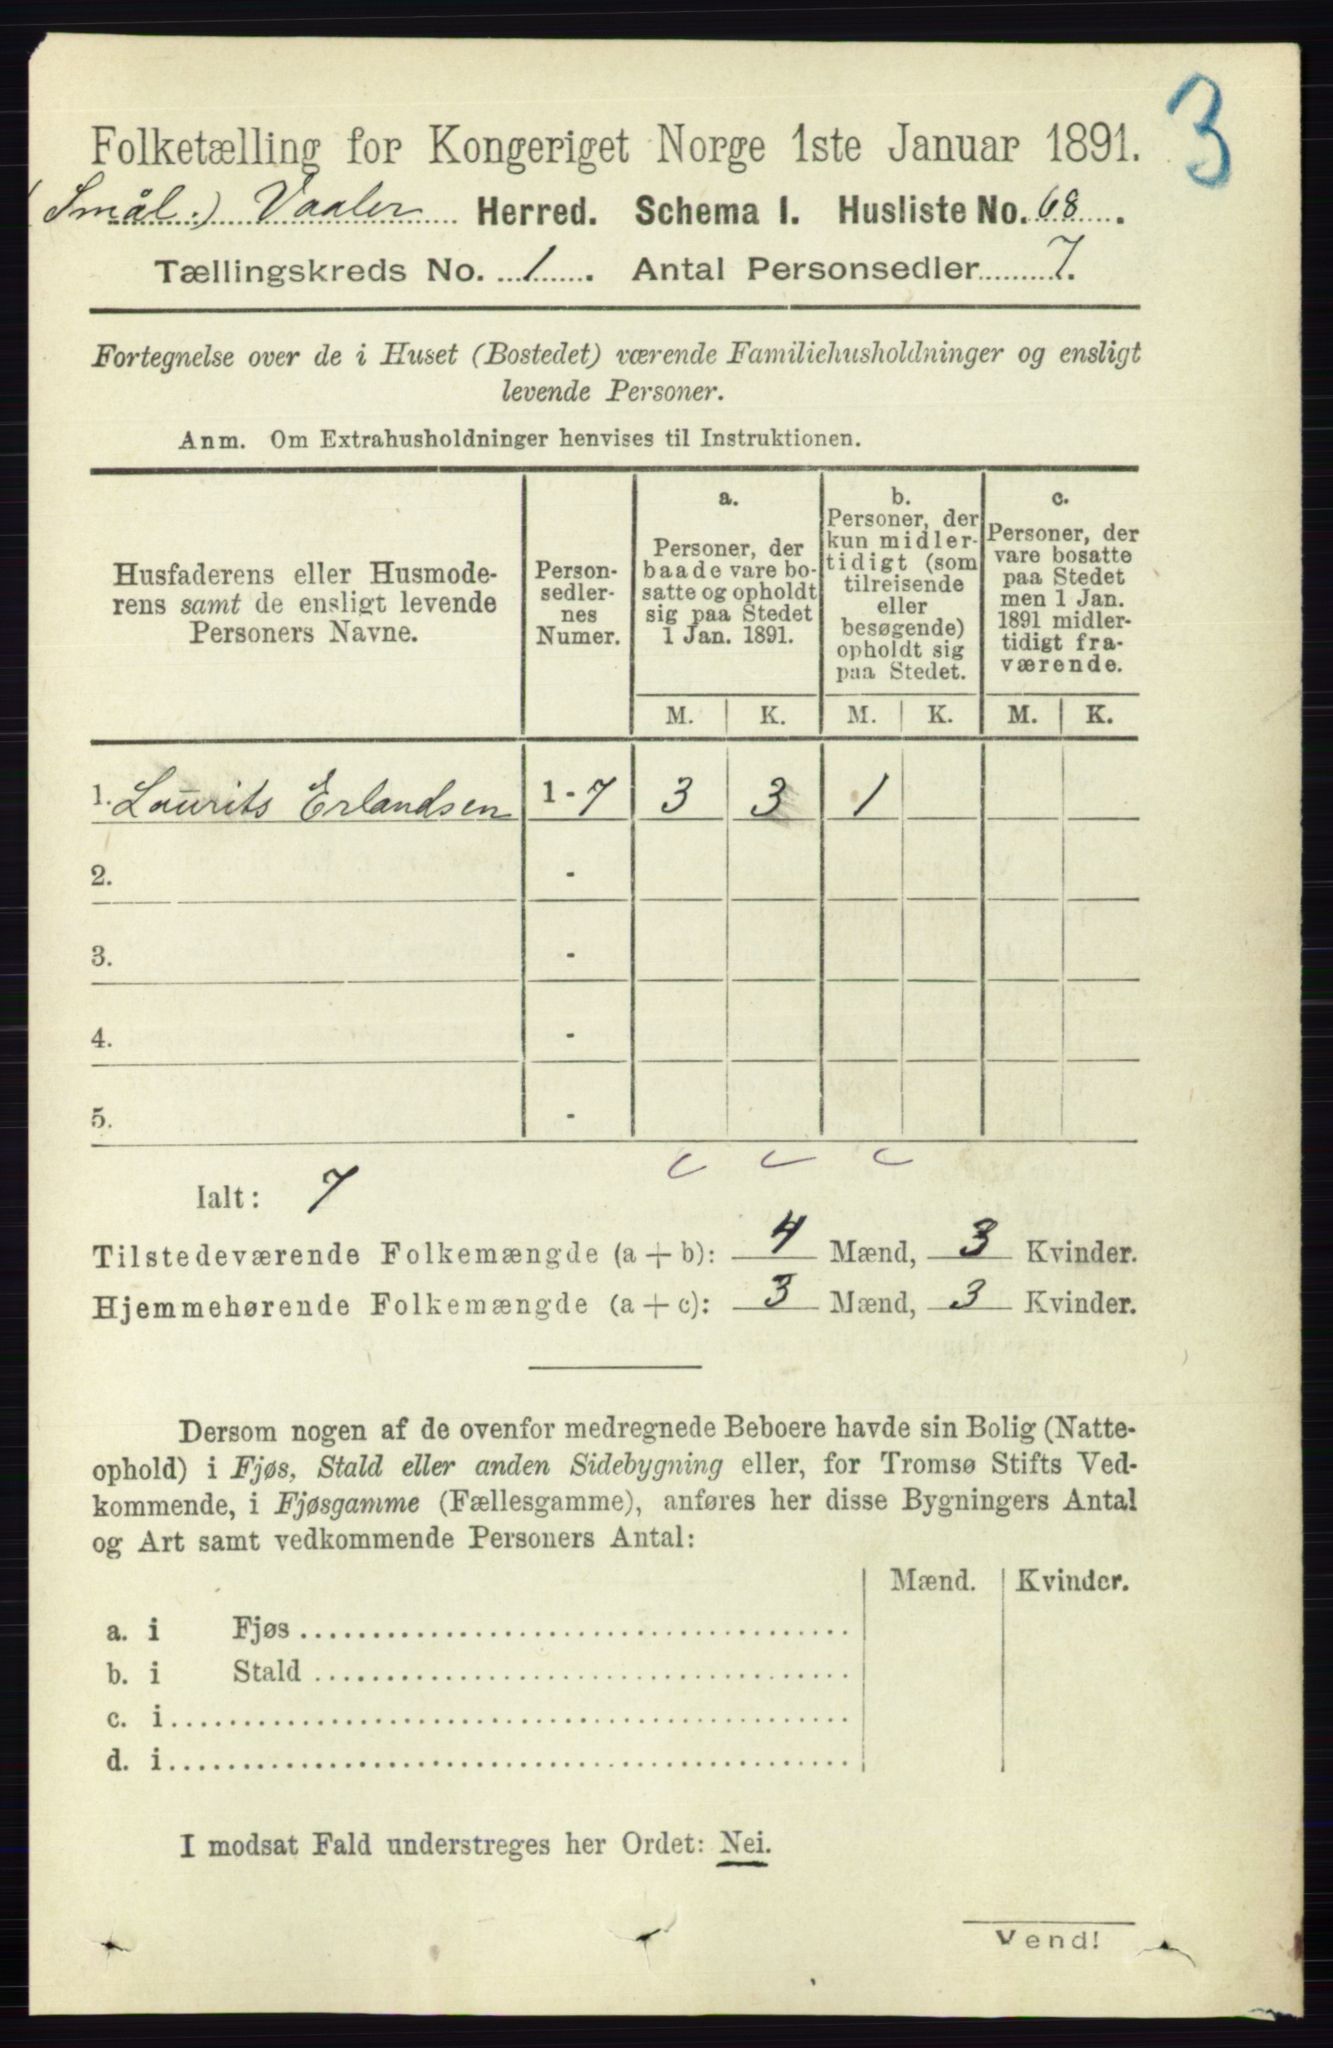 3
Folketælling for Kongeriget Norge 1ste Januar 1891.
(Smål.) Vaaler Herred. Schema 1. Husliste No. 68.
Tællingskreds No. 1. Antal Personsedler 7.
Fortegnelse over de i Huset (Bostedet) værende Familiehusholdninger og ensligt
levende Personer.
Anm. Om Extrahusholdninger henvises til Instruktionen.
Husfaderens eller Husmode-
rens samt de ensligt levende
Personers Navne.
Person-
sedler-
nes
Numer.
a.
Personer, der
baade vare bo-
satte og opholdt
sig paa Stedet
1 Jan. 1891.
b.
Personer, der
kun midler-
tidigt (som
tilreisende
eller
besøgende)
opholdt sig
paa Stedet.
c.
Personer, der
vare bosatte
paa Stedet
men 1 Jan.
1891 midler-
tidigt fra-
værende.
M. K. M. K. M. K.
1. Laurits Erlandsen 1 - 7 3 3 1
2. -
3. -
4. -
5. -
Ialt: 7
Tilstedeværende Folkemængde (a + b): 4 Mænd, 3 Kvinder.
Hjemmehørende Folkemængde (a + c): 3 Mænd, 3 Kvinder.
Dersom nogen af de ovenfor medregnede Beboere havde sin Bolig (Natte-
ophold) i Fjøs, Stald eller anden Sidebygning eller, for Tromsø Stifts Ved-
kommende, i Fjøsgamme (Fællesgamme), anføres her disse Bygningers Antal
og Art samt vedkommende Personers Antal:
Mænd. Kvinder.
a. i Fjøs
b. i Stald
c. i
d. i
I modsat Fald understreges her Ordet: Nei.
Vend!